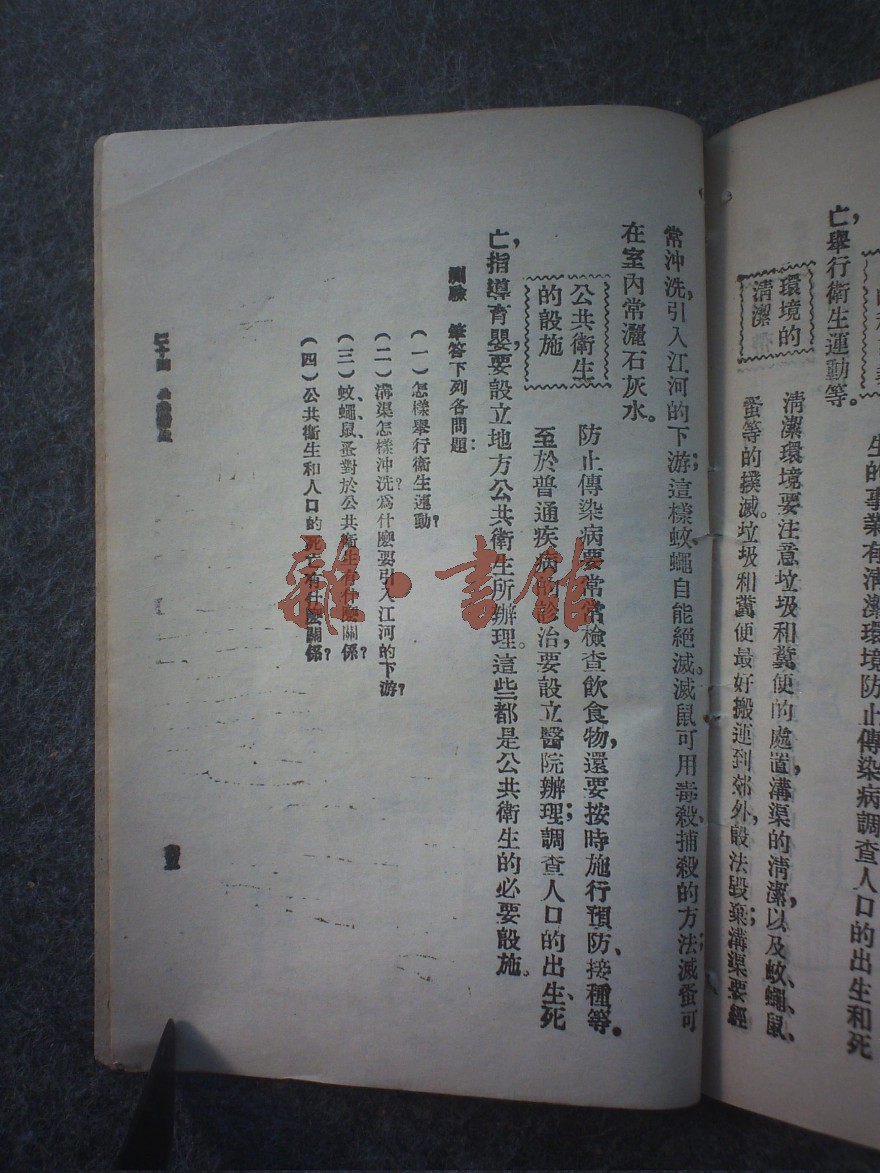 亡，舉行衛生運動等。
生的事業有清潔環境防止傳染病調查人口的出生和死
環境的
清潔
清潔環境要注意垃圾和糞便的處置，溝渠的清潔，以及蚊、蠅、鼠、
蚤等的撲滅。垃圾和糞便最好搬運到郊外，設法毀棄；溝渠要經
常沖洗，引入江河的下游；這樣蚊蠅自能絕滅。滅鼠可用毒殺、捕殺的方法；滅蚤可
在室內常灑石灰水。
公共衛生
的設施
防止傳染病要常常檢查飲食物，還要按時施行預防、接種等。
至於普通疾病的診治，要設立醫院辦理；調查人口的出生、死
亡，指導育嬰，要設立地方公共衛生所辦理。這些都是公共衛生的必要設施。
測驗　筆答下列各問題：
(一)怎樣舉行衛生運動？
(二)溝渠怎樣沖洗？爲什麼要引入江河的下游？
(三)蚊、蠅、鼠、蚤對於公共衛生有什麼關係？
(四)公共衛生和人口的死亡有什麼關係？
雜·書館